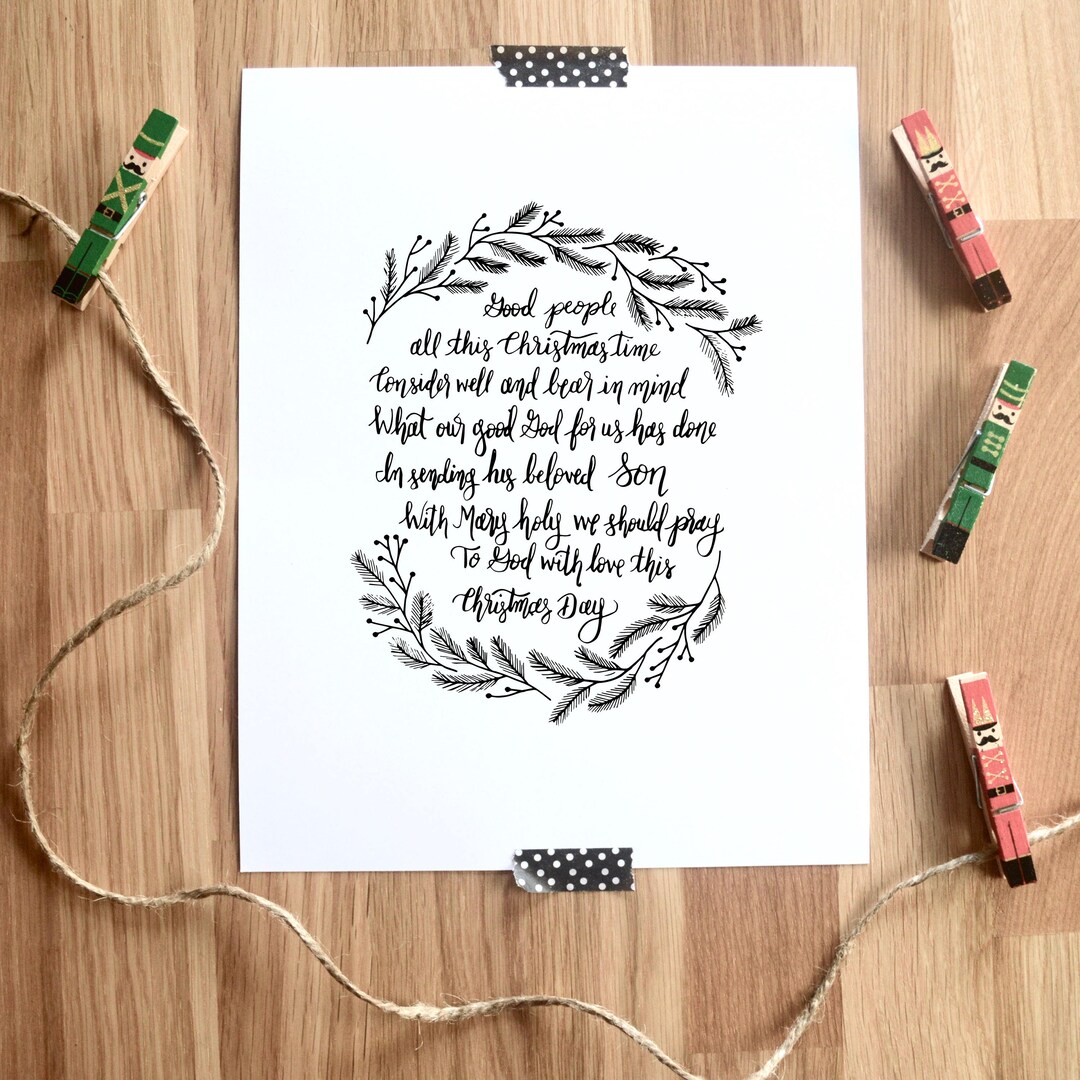 Good people
all this Christmas time
Consider well and bear in mind
What our good God for us has done
In sending his beloved Son
With Mary holy we should pray
To God with love this
Christmas Day